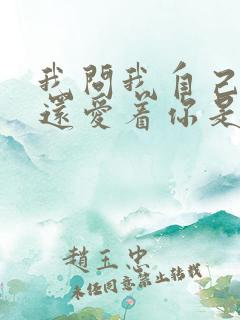 我問我自己
還愛着你是
趙玉忠
未經同意禁止轉載